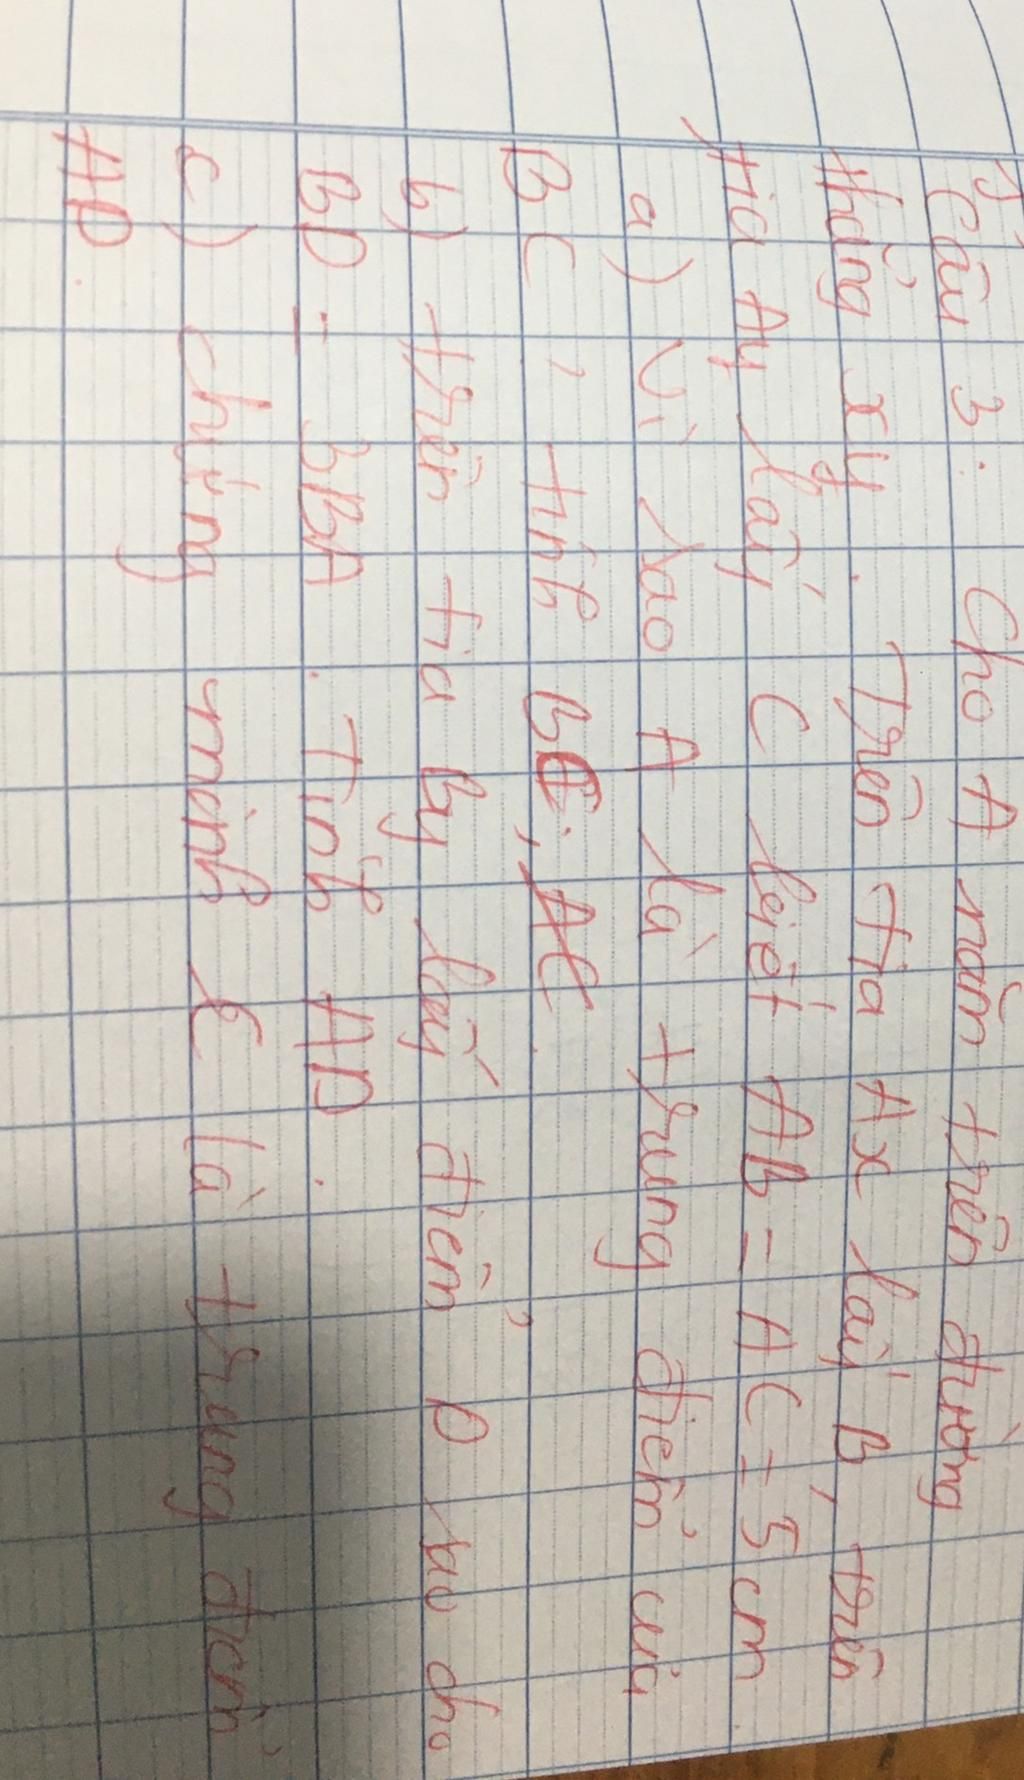 Câu 3. Cho A nằm trên đường
thẳng xy. Trên tia Ax lấy B, trên
tia Ay lấy C biết AB = AC = 5 cm
a) Vì sao A là trung điểm của
BC, tính BC,
b) trên tia By lấy điểm D sao cho
BD = 3BA. Tính AD.
c) chứng minh C là trung điểm
AD.